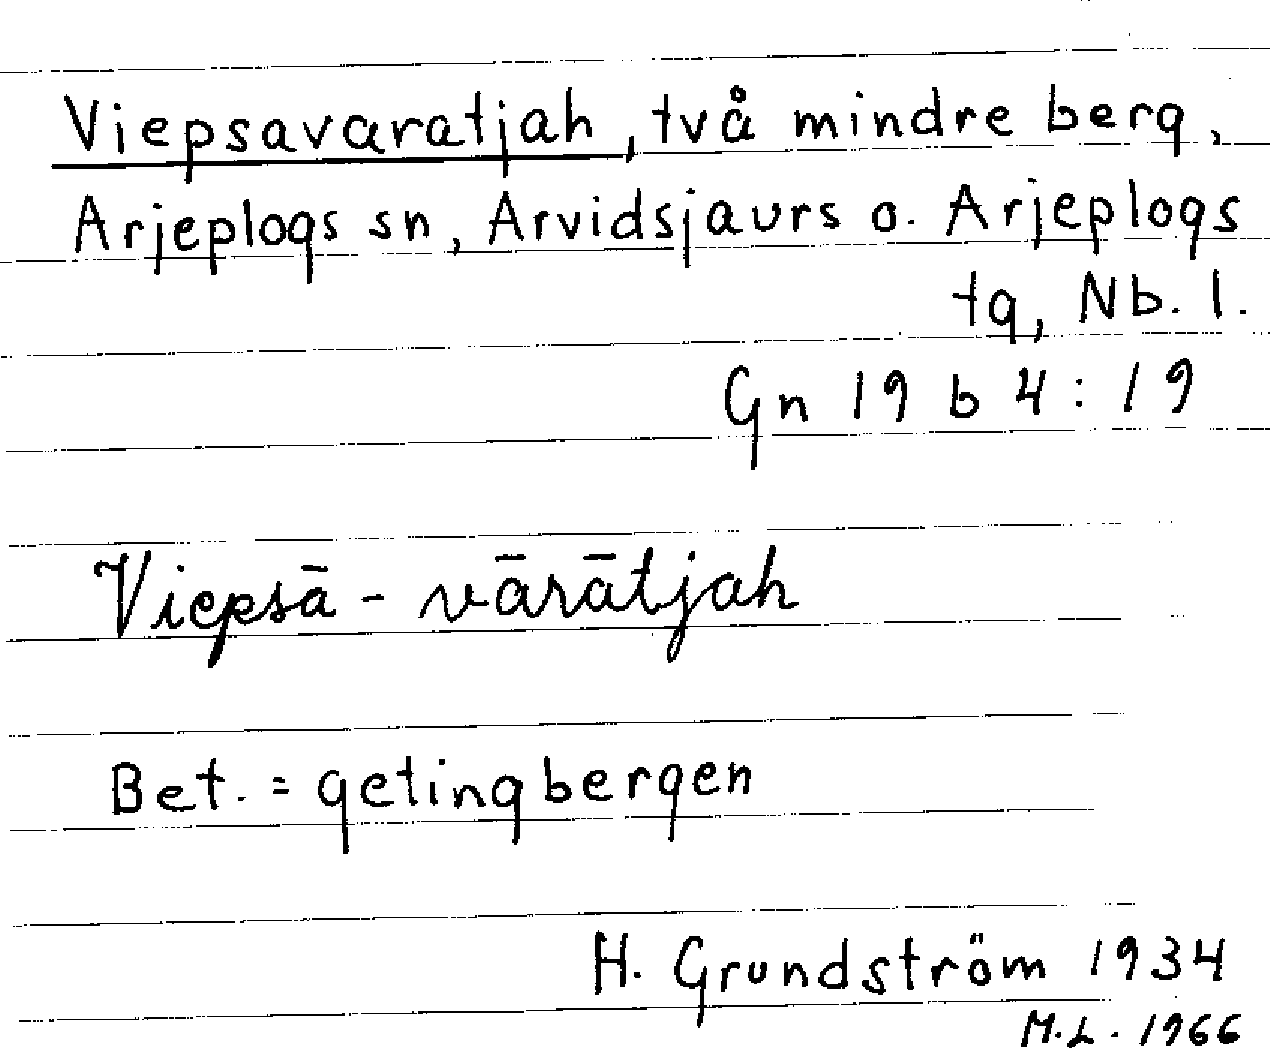 Viepsavaratjah, två mindre berg,
Arjeplogs sn, Arvidsjaurs o. Arjeplogs
tg, Nb. l.
Gn 19 b 4:19
Viepsā - vārātjah
Bet. = getingbergen
H. Grundström 1934
M.L. 1966